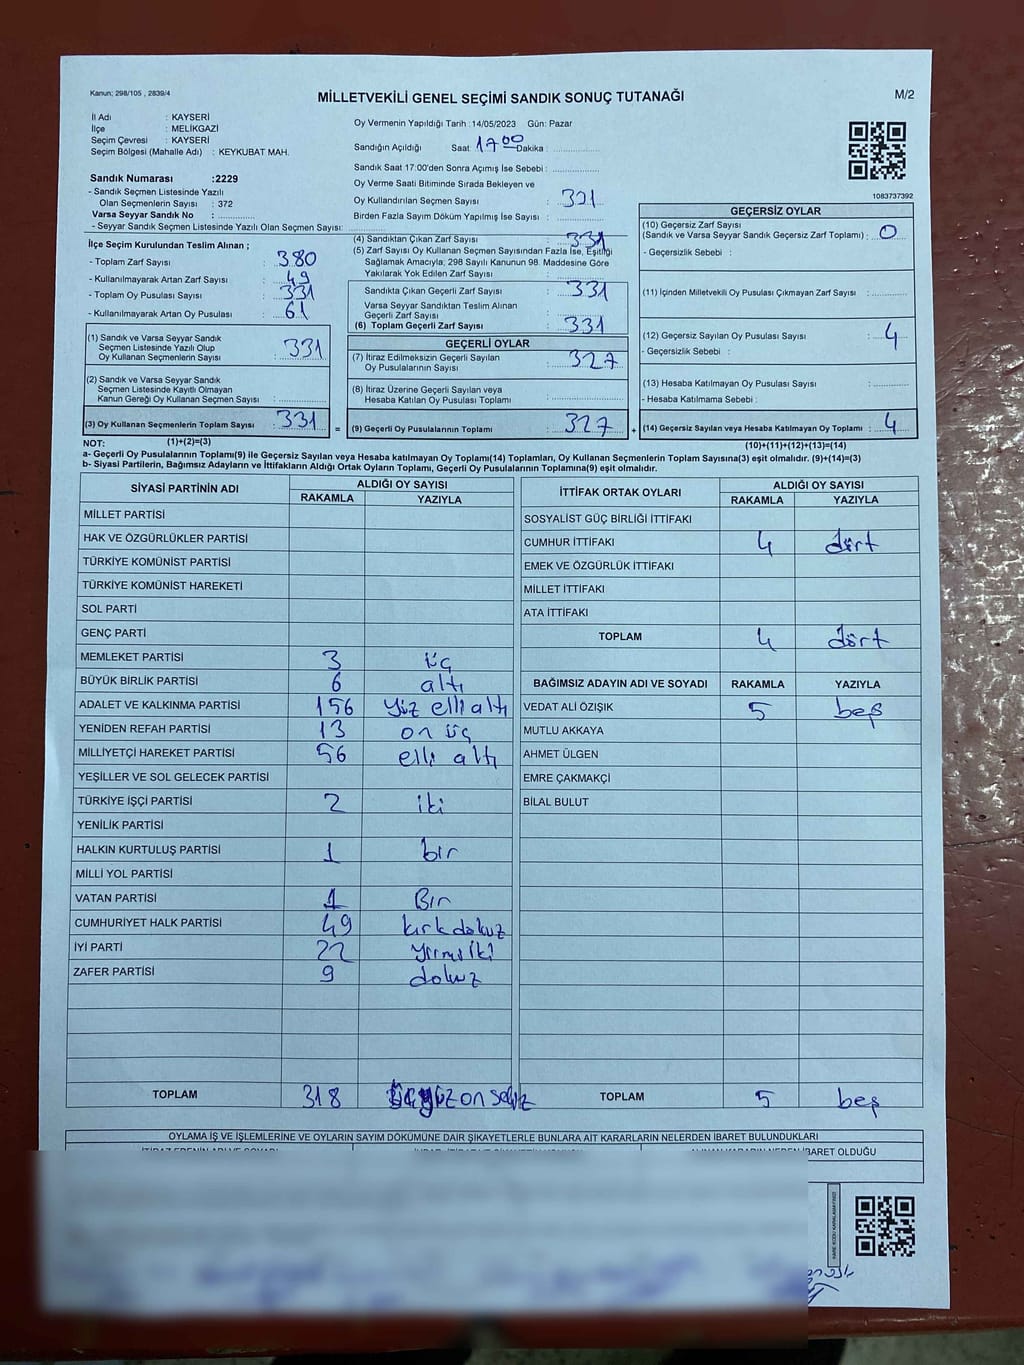 Kanun; 298/105 , 2839/4
MİLLETVEKİLİ GENEL SEÇİMİ SANDIK SONUÇ TUTANAĞI
M/2
İl Adı : KAYSERİ
İlçe : MELİKGAZİ
Seçim Çevresi : KAYSERİ
Seçim Bölgesi (Mahalle Adı) : KEYKUBAT MAH.
Oy Vermenin Yapıldığı Tarih :14/05/2023 Gün: Pazar
Sandığın Açıldığı Saat: 17 00 Dakika : ..............
Sandık Saat 17:00'den Sonra Açımış İse Sebebi : ..............
Oy Verme Saati Bitiminde Sırada Bekleyen ve
Oy Kullandırılan Seçmen Sayısı : 321
Birden Fazla Sayım Döküm Yapılmış İSe Sayısı : ..............
1083737392
Sandık Numarası :2229
- Sandık Seçmen Listesinde Yazılı
Olan Seçmenlerin Sayısı : 372
Varsa Seyyar Sandık No : ..............
- Seyyar Sandık Seçmen Listesinde Yazılı Olan Seçmen Sayısı: ..............
İlçe Seçim Kurulundan Teslim Alınan ;
- Toplam Zarf Sayısı : 380
- Kullanılmayarak Artan Zarf Sayısı : 49
- Toplam Oy Pusulası Sayısı : 331
- Kullanılmayarak Artan Oy Pusulası : 61
(1) Sandık ve Varsa Seyyar Sandık
Seçmen Listesinde Yazılı Olup
Oy Kullanan Seçmenlerin Sayısı : 331
(2) Sandık ve Varsa Seyyar Sandık
Seçmen Listesinde Kayıtlı Olmayan
Kanun Gereği Oy Kullanan Seçmen Sayısı : ..............
(3) Oy Kullanan Seçmenlerin Toplam Sayısı : 331 =
(4) Sandıktan Çıkan Zarf Sayısı : 331
(5) Zarf Sayısı Oy Kullanan Seçmen Sayısından Fazla İse, Eşitliği
Sağlamak Amacıyla; 298 Sayılı Kanunun 98. Maddesine Göre
Yakılarak Yok Edilen Zarf Sayısı : ..............
Sandıkta Çıkan Geçerli Zarf Sayısı : 331
Varsa Seyyar Sandıktan Teslim Alınan
Geçerli Zarf Sayısı : ..............
(6) Toplam Geçerli Zarf Sayısı : 331
GEÇERLİ OYLAR
(7) İtiraz Edilmeksizin Geçerli Sayılan
Oy Pusulalarının Sayısı : 327
(8) İtiraz Üzerine Geçerli Sayılan veya
Hesaba Katılan Oy Pusulası Toplamı : ..............
(9) Geçerli Oy Pusulalarının Toplamı : 327 +
GEÇERSİZ OYLAR
(10) Geçersiz Zarf Sayısı
(Sandık ve Varsa Seyyar Sandık Geçersiz Zarf Toplamı) : 0
- Geçersizlik Sebebi :
(11) İçinden Milletvekili Oy Pusulası Çıkmayan Zarf Sayısı : ..............
(12) Geçersiz Sayılan Oy Pusulası Sayısı : 4
- Geçersizlik Sebebi :
(13) Hesaba Katılmayan Oy Pusulası Sayısı : ..............
- Hesaba Katılmama Sebebi :
(14) Geçersiz Sayılan veya Hesaba Katılmayan Oy Toplamı : 4
NOT: (1)+(2)=(3)
(10)+(11)+(12)+(13)=(14)
a- Geçerli Oy Pusulalarının Toplamı(9) ile Geçersiz Sayılan veya Hesaba katılmayan Oy Toplamı(14) Toplamları, Oy Kullanan Seçmenlerin Toplam Sayısına(3) eşit olmalıdır. (9)+(14)=(3)
b- Siyasi Partilerin, Bağımsız Adayların ve İttifakların Aldığı Ortak Oyların Toplamı, Geçerli Oy Pusulalarının Toplamına(9) eşit olmalıdır.
SİYASİ PARTİNİN ADI ALDIĞI OY SAYISI
RAKAMLA YAZIYLA
MİLLET PARTİSİ
HAK VE ÖZGÜRLÜKLER PARTİSİ
TÜRKİYE KOMÜNİST PARTİSİ
TÜRKİYE KOMÜNİST HAREKETİ
SOL PARTİ
GENÇ PARTİ
MEMLEKET PARTİSİ 3 üç
BÜYÜK BİRLİK PARTİSİ 6 altı
ADALET VE KALKINMA PARTİSİ 156 yüz elli altı
YENİDEN REFAH PARTİSİ 13 on üç
MİLLİYETÇİ HAREKET PARTİSİ 56 elli altı
YEŞİLLER VE SOL GELECEK PARTİSİ
TÜRKİYE İŞÇİ PARTİSİ 2 iki
YENİLİK PARTİSİ
HALKIN KURTULUŞ PARTİSİ 1 bir
MİLLİ YOL PARTİSİ
VATAN PARTİSİ 1 Bır
CUMHURİYET HALK PARTİSİ 49 kırk dokuz
İYİ PARTİ 22 yirmi iki
ZAFER PARTİSİ 9 dokuz
TOPLAM 318 üçyüz on sekiz
İTTİFAK ORTAK OYLARI ALDIĞI OY SAYISI
RAKAMLA YAZIYLA
SOSYALİST GÜÇ BİRLİĞİ İTTİFAKI
CUMHUR İTTİFAKI 4 dört
EMEK VE ÖZGÜRLÜK İTTİFAKI
MİLLET İTTİFAKI
ATA İTTİFAKI
TOPLAM 4 dört
BAĞIMSIZ ADAYIN ADI VE SOYADI RAKAMLA YAZIYLA
VEDAT ALİ ÖZIŞIK 5 beş
MUTLU AKKAYA
AHMET ÜLGEN
EMRE ÇAKMAKÇİ
BİLAL BULUT
TOPLAM 5 beş
OYLAMA İŞ VE İŞLEMLERİNE VE OYLARIN SAYIM DÖKÜMÜNE DAİR ŞİKAYETLERLE BUNLARA AİT KARARLARIN NELERDEN İBARET BULUNDUKLARI
İBARET OLDUĞU